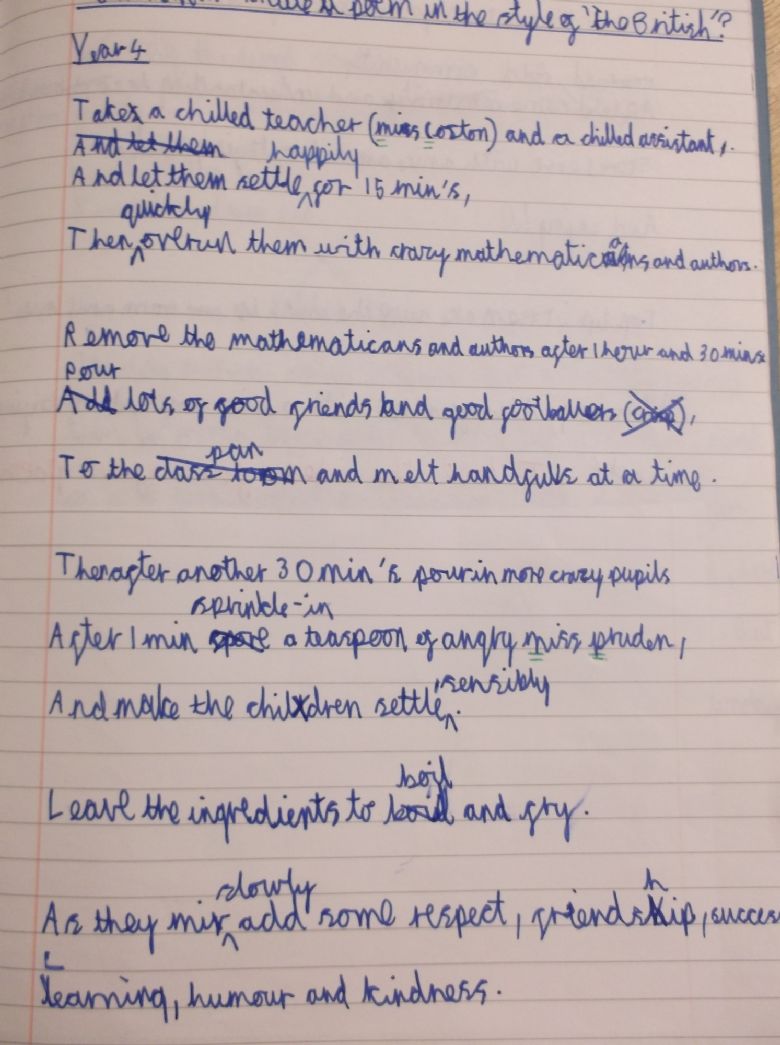 a poem in the style of 'The British'?
Year 4
Takes a chilled teacher (miss Coston) and a chilled assistant,.
And let them happily
And let them settle, for 15 min's,
quickly
Then overrun them with crazy mathematicans and authors.
Remove the mathematicans and authors after 1 hour and 30 mins
pour
Add lots of good friends and good footballers
pan
To the class room and melt handfulls at a time.
Then after another 30 min's pour in more crazy pupils
sprinkle-in
After 1 min a teaspoon of angry miss pruden,
sensibly
And make the children settle,.
boil
Leave the ingredients to boil and fry.
slowly h
As they mix add some respect, friendship, succes
L
learning, humour and kindness.